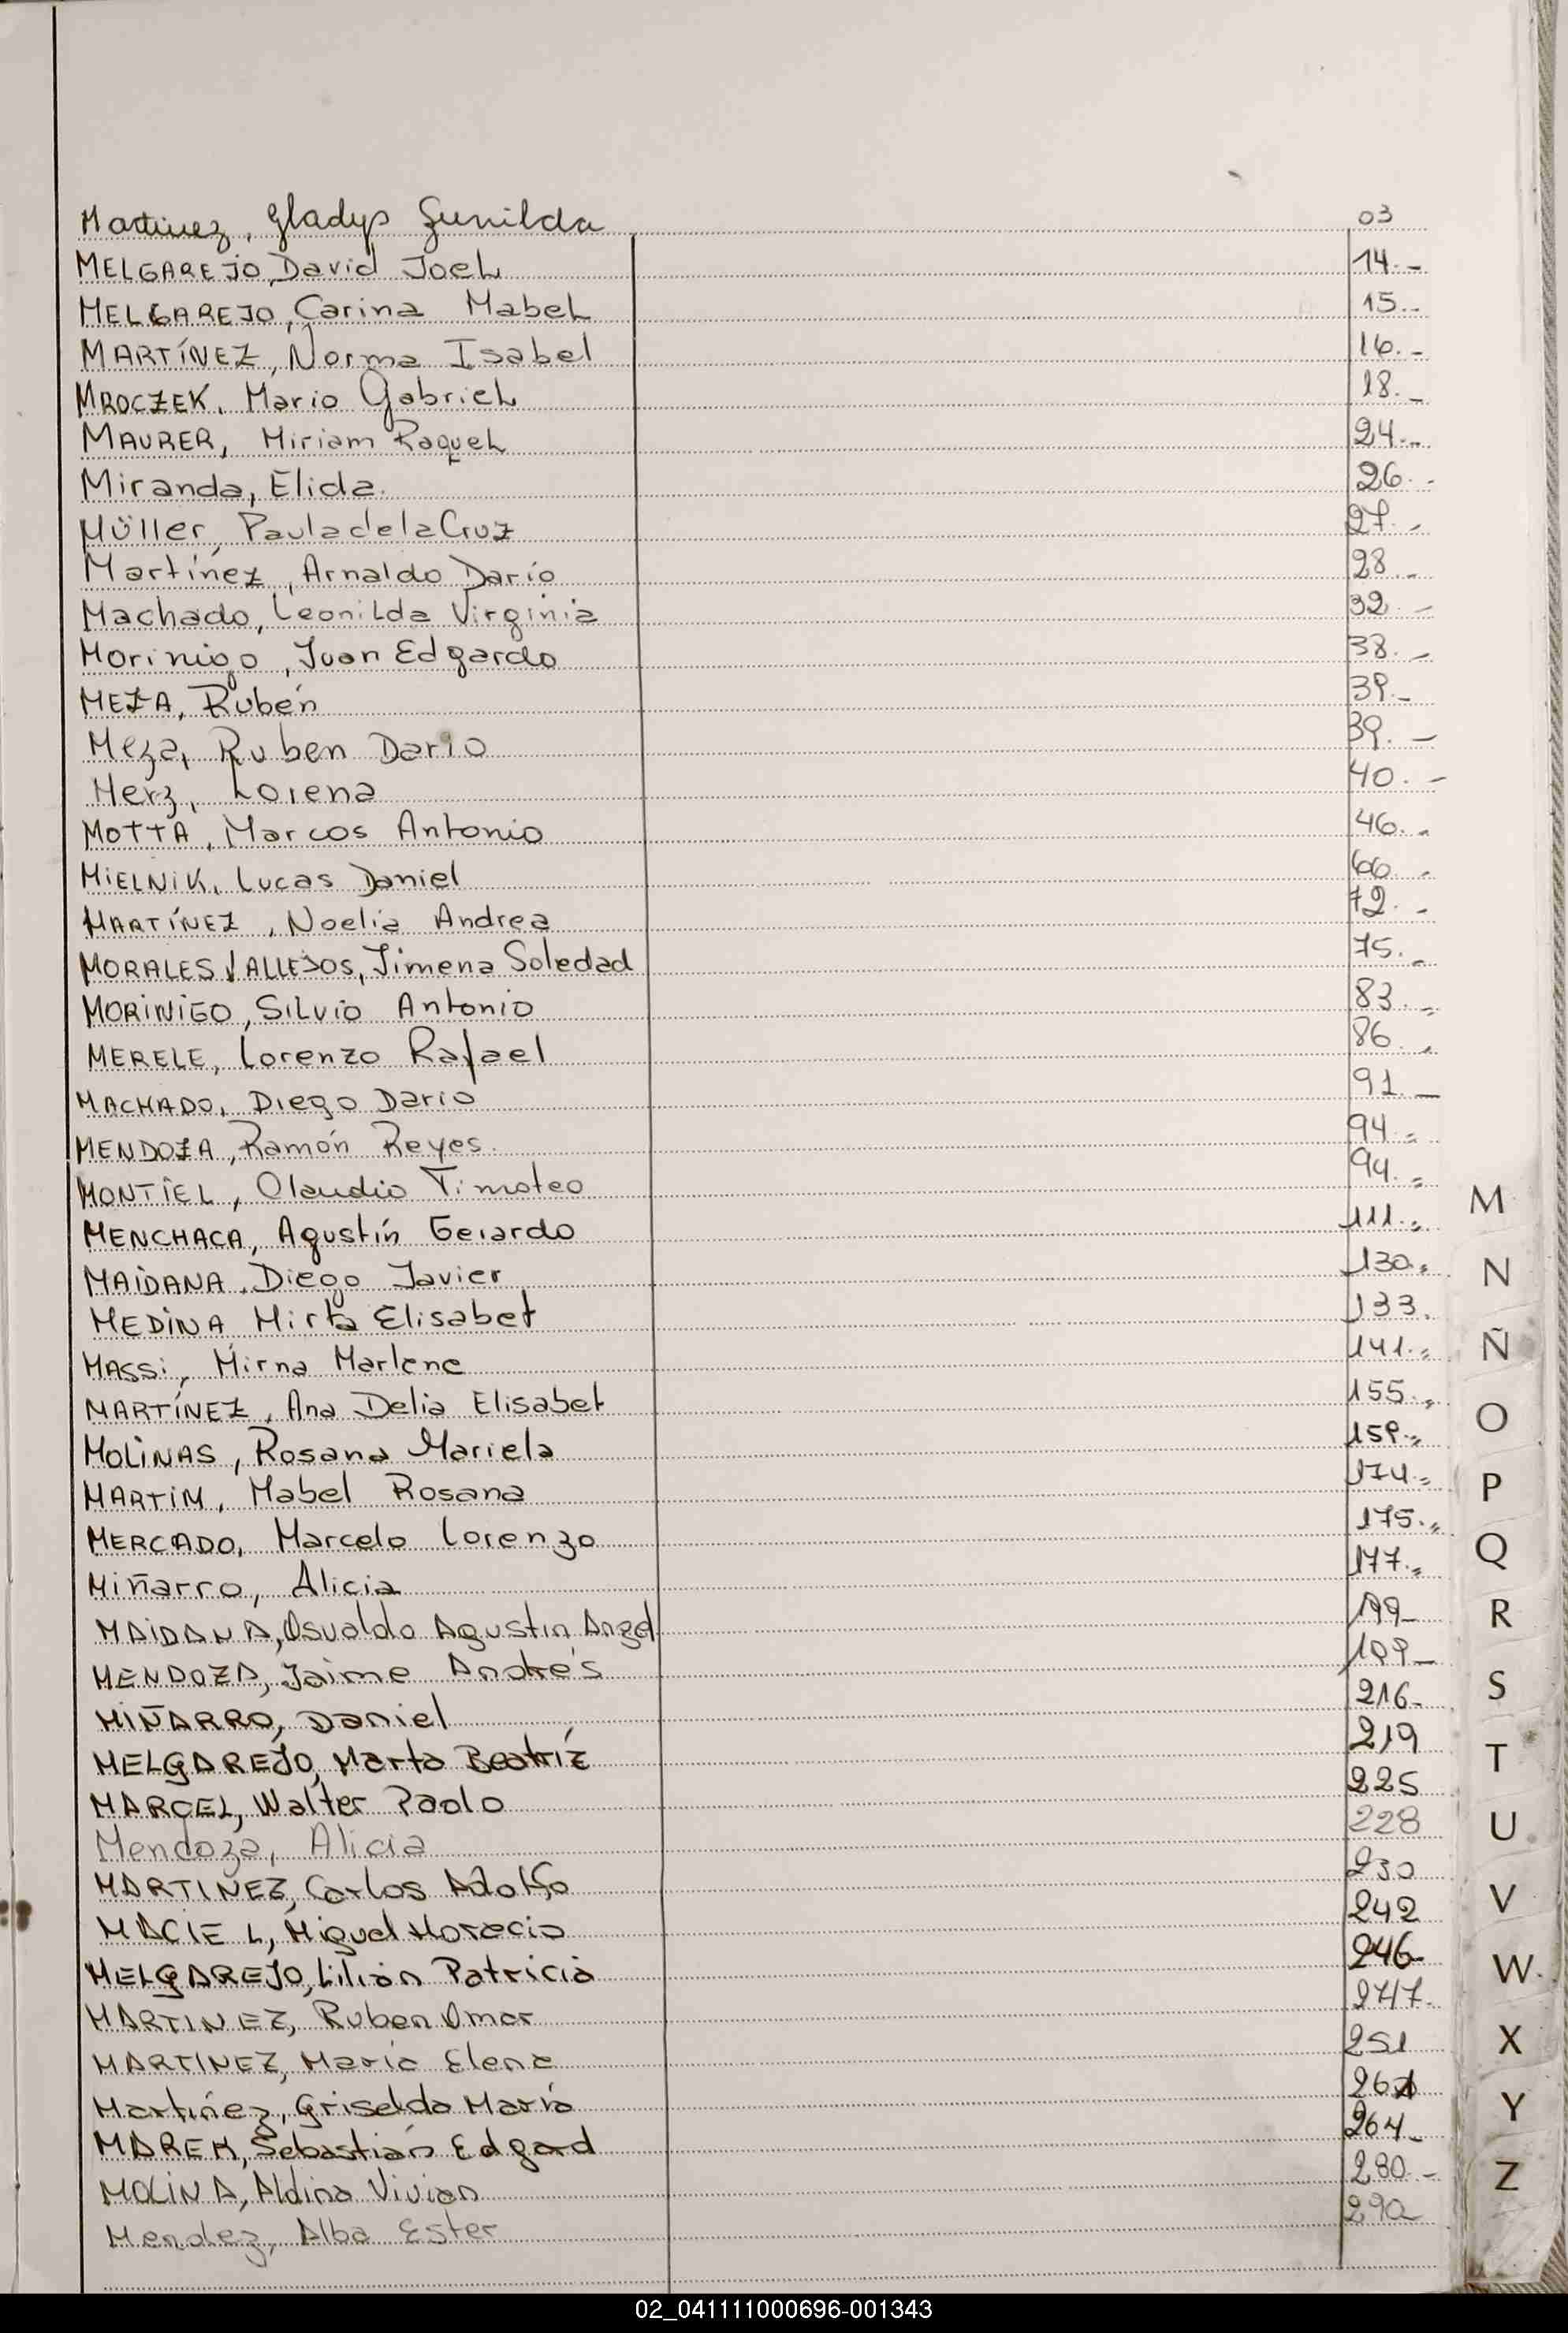 Martinez, Gladys Gunilda 03
MELGAREJO, David Joel 14.-
MELGAREJO, Carina Mabel 15.-
MARTÍNEZ, Norma Isabel 16.-
MROCZEK, Mario Gabriel 18.-
MAURER, Miriam Raquel 24.-
Miranda, Elida. 26.-
Müller, Paula de la Cruz 27.-
Martínez, Arnaldo Darío 28.-
Machado, Leonilda Virginia 32.-
Morinigo, Juan Edgardo 38.-
MEZA, Rubén 39.-
Meza, Ruben Dario 39.-
Merz, Lorena 40.-
MOTTA, Marcos Antonio 46.-
MIELNIK, Lucas Daniel 66.-
MARTÍNEZ, Noelia Andrea 72.-
MORALES VALLEJOS, Jimena Soledad 75.-
MORINIGO, Silvio Antonio 83.-
MERELE, Lorenzo Rafael 86.-
MACHADO, Diego Dario 91.-
MENDOZA, Ramón Reyes. 94.-
MONTIEL, Claudio Timoteo 94.-
MENCHACA, Agustín Gerardo 111.-
MAIDANA, Diego Javier 130.-
MEDINA Mirta Elisabet 133.
MASSI, Mirna Marlene 141.-
MARTÍNEZ, Ana Delia Elisabet 155.-
MOLINAS, Rosana Mariela 159.-
MARTIM, Mabel Rosana 174.-
MERCADO, Marcelo Lorenzo 175.-
Miñarro, Alicia 177.-
MAIDANA, Osvaldo Agustin Angel
MENDOZA, Jaime Andrés
MIÑARRO, Daniel 216-
MELGAREJO, Marta Beatríz 219
MARCEL, Walter Paolo 225
Mendoza, Alicia 228
MARTINEZ, Carlos Adolfo 230
MACIEL, Miguel Horacio 242
MELGAREJO, Lilian Patricia 246-
MARTINEZ, Ruben Omar 247-
MARTINEZ, María Elena 251
Martínez, Griselda María
MAREK, Sebastián Edgard 264-
MOLINA, Aldina Vivian 280-
Mendez, Alba Ester 290
M
N
Ñ
O
P
Q
R
S
T
U
V
W
X
Y
Z
02_041111000696-001343